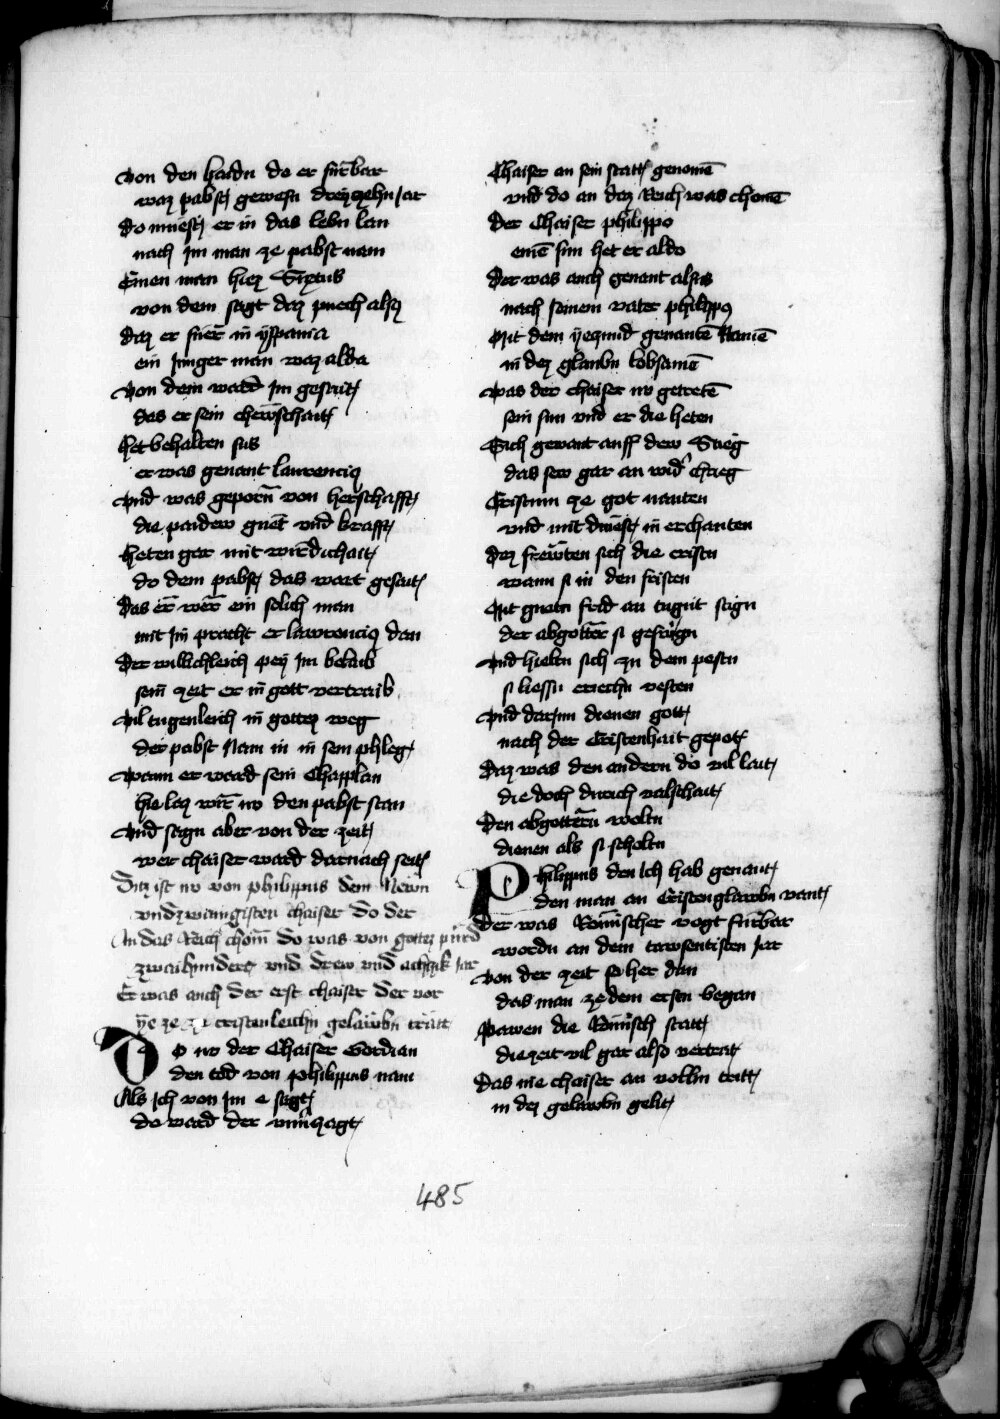 von den haidn do er fürbar
waz pabst gewesn dreyzehn Jar
do muest er in das lebn lan
nach Im man ze pabst nam
Einen man hiez Sixtus
von dem sagt daz puech alsus
daz er fuer in yspania
ein Junger man waz alda
Von dem ward Im gesait
das er sein chewschait
het behalten sus
er was genant laurencius
Vnd was geporn von herschafft
die paidew guet vnd krafft
heten gar mit wirdichait
do dem pabst das wart gesait
das er wer ein solich man
mit Im pracht er lawrencius dan
der willichleich pey Im belaib
sein zeit er in gott vertraib
Vil tugenleich in gottez weg
der pabst Nam in in sein phleg
Wann er ward sein Chapplan
hie laz wir nv den pabst stan
Vnd sagn aber von der zeit
wer chaiser ward darnach seit
Ditz ist nv von philippus dem Newn
vndzwaingisten chaiser do der
In das Reich chom do was von gottez pürd
zwaihundert vnd drew vnd achzk Jar
Er was auch der erst chaiser der vor
ye ze cristanleichn gelaubn tratt
Do nv der Chaiser Gordian
den tod von philippus nam
Als Ich von Im e sagt
do ward der vnuerzagt
Chaiser an sein statt genomen
vnd do an daz Reich was chomen
der Chaiser philippo
einen sun het er aldo
der was auch genant alsus
nach seinem vater philippus
Mit dem yezund genanten Namen
in dez glaubn lobsamen
was der chaiser nv getreten
sein sun vnd er die heten
Sich gewant auff dew Steig
das sew gar an wider chrieg
Cristum ze got nanten
vnd mit dinest in erchanten
dez frewten sich die cristn
wann si in den fristen
Mit guotn frid an tugnt stign
der abgotter si geswign
Vnd hieltn sich zu dem pestn
si liessn chirchn vesten
Vnd darInn dienen gott
nach der Cristenhait gepot
daz was den andern do vil lait
die doch durich valschait
den abgottern woltn
dienen als si scholtn
Philippus den Ich hab genant
den man an Cristenglawbn vant
der was Römischer vogt fürbar
wordn an dem tawsentisten Jar
von der zeit so her dan
das man ze dem ersten began
pawen die Römisch statt
die zeit vil gar also vertrat
das nie chaiser an vollin tritt
in dez gelawbn gelit
485